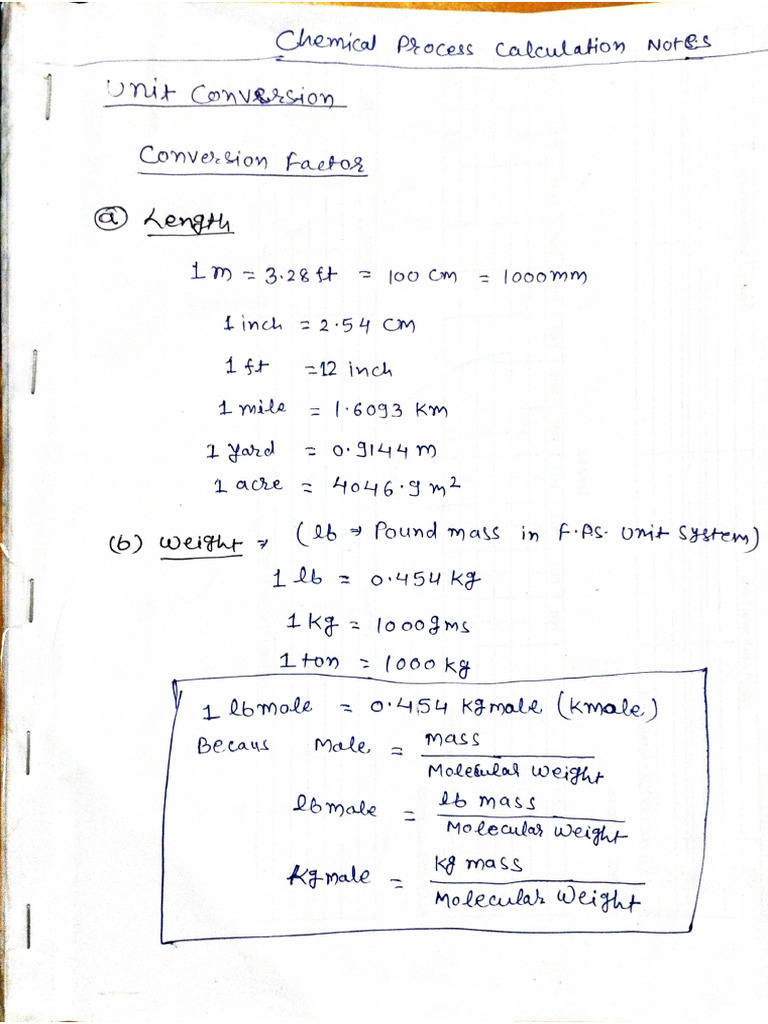 Chemical Process Calculation Notes
Unit Conversion
Conversion Factor
(a) Length
1 m = 3.28 ft = 100 cm = 1000mm
1 inch = 2.54 cm
1 ft = 12 inch
1 mile = 1.6093 Km
1 yard = 0.9144 m
1 acre = 4046.9 m²
(b) Weight → (lb → Pound mass in F.P.S. Unit System)
1 lb = 0.454 kg
1 Kg = 1000gms
1 ton = 1000 kg
1 lbmole = 0.454 Kgmole (Kmole)
Becaus Mole = mass / Molecular Weight
lbmole = lb mass / Molecular Weight
Kgmole = kg mass / Molecular Weight